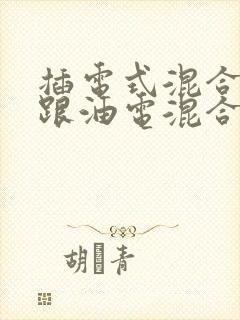 插電式混合
跟油電混合
胡青